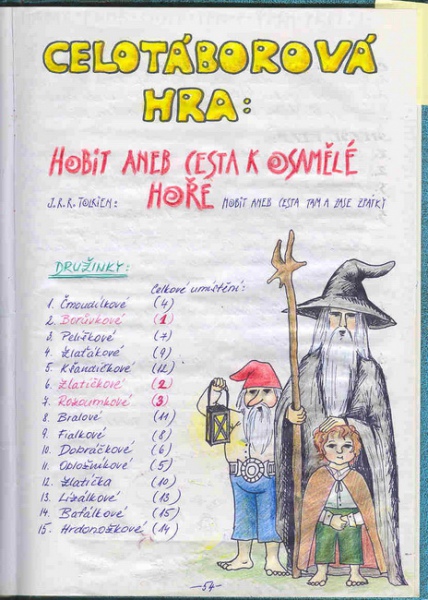 CELOTÁBOROVÁ
HRA:
HOBIT ANEB CESTA K OSAMĚLÉ
HOŘE
J.R.R. TOLKIEN: HOBIT ANEB CESTA TAM A ZASE ZPÁTKY
DRUŽINKY: Celkové umístění:
1. Čmoudílkové (4)
2. Borůvkové (1)
3. Pelíškové (7)
4. Zlaťákové (9)
5. Kňandíčkové (12)
6. Zlatíčkové (2)
7. Rokoumkové (3)
8. Bralové (11)
9. Fialkové (8)
10. Dobráčkové (6)
11. Obložníkové (5)
12. Zlatíčka (10)
13. Lízálkové (13)
14. Baťálkové (15)
15. Hrdonožkové (14)
-54-